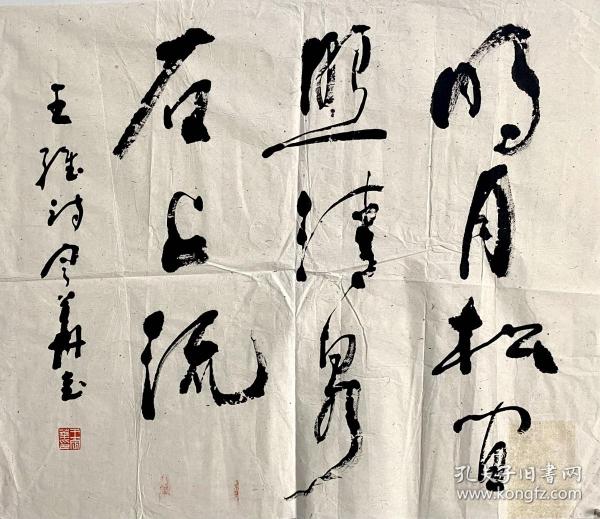 明月松间
照清泉
石上流
王维诗
孔夫子旧书网
www.kongfz.com